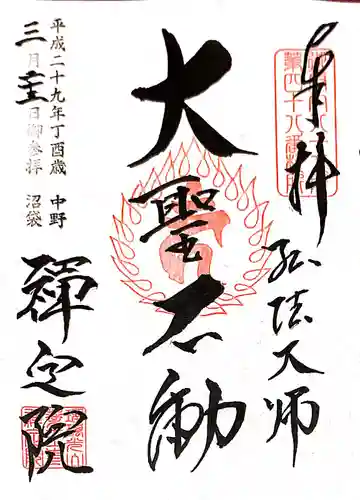 奉拝
弘法大師
大聖不動
平成二十九年丁酉歳 中野
三月十五日御参拝 沼袋
禅定院